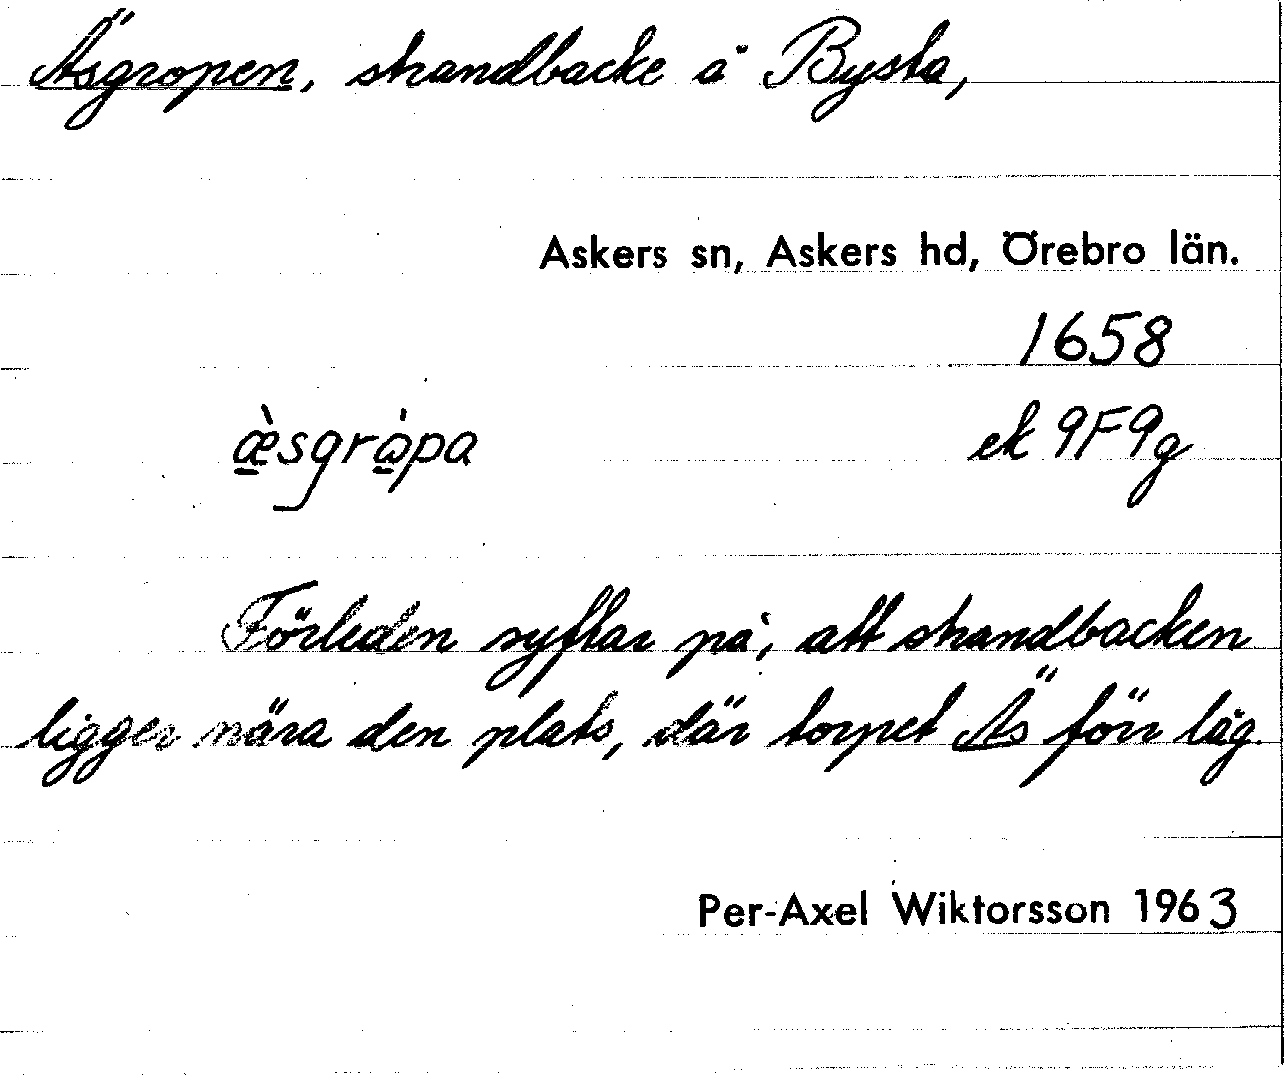 Äsgropen, strandbacke å Bysta,
Askers sn, Askers hd, Örebro län.
1658
æ̀sgrɷ̀pa ek 9F9g
Förleden syftar på, att strandbacken
ligger nära den plats, där torpet Äs förr låg.
Per-Axel Wiktorsson 1963